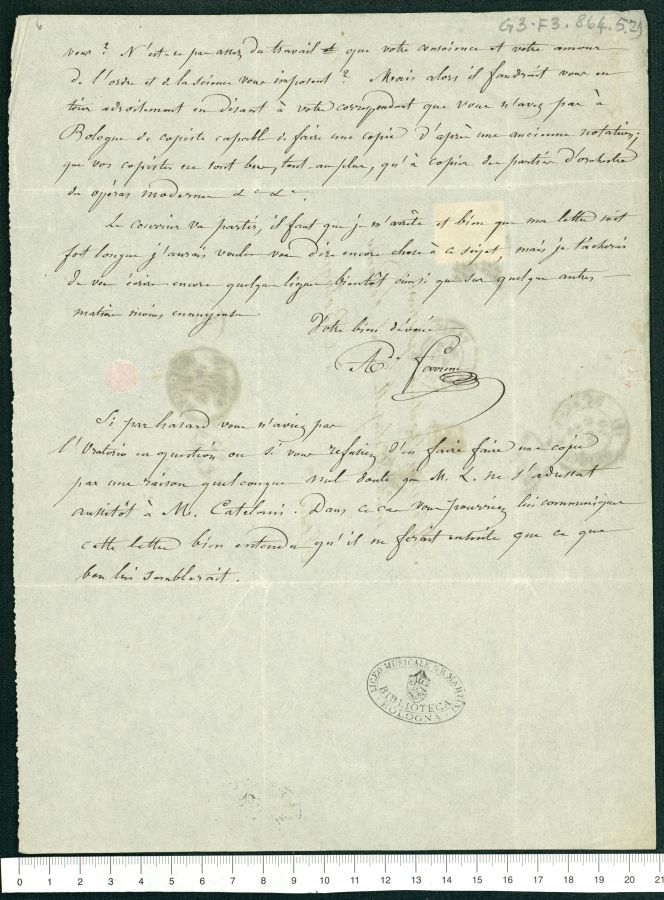 6
G3-F3.864.5.29
vous ? N'est-ce pas assez du travail que votre conscience et votre amour
de l'ordre et de la science vous imposent ? Mais alors il faudrait vous en
tirer adroitement en disant à votre correspondant que vous n'avez pas à
Bologne de copiste capable de faire une copie d'après une ancienne notation;
que vos copistes ne sont bons, tout au plus, qu'à copier des parties d'orchestre
des opéras modernes &c &c.
Le courrier va partir, il faut que je m'arrête et bien que ma lettre soit
fort longue j'aurais voulu vous dire encore chose à ce sujet, mais je tâcherai
de vous écrire encore quelques lignes bientôt ainsi que sur quelque autres
matière moins ennuyeuse
Votre bien dévoué
Ade
Si par hasard vous n'aviez pas
l'Oratorio en question ou si vous refusiez d'en faire faire une copie
par une raison quelconque nul doute que M. L. ne s'adressât
aussitôt à M. Catelani. Dans ce cas vous pourriez lui communiquer
cette lettre bien entendu qu'il ne ferait ensuite que ce que
bon lui semblerait.
LICEO MUSICALE G.B. MARTINI
BIBLIOTECA
BOLOGNA
0 1 2 3 4 5 6 7 8 9 10 11 12 13 14 15 16 17 18 19 20 21